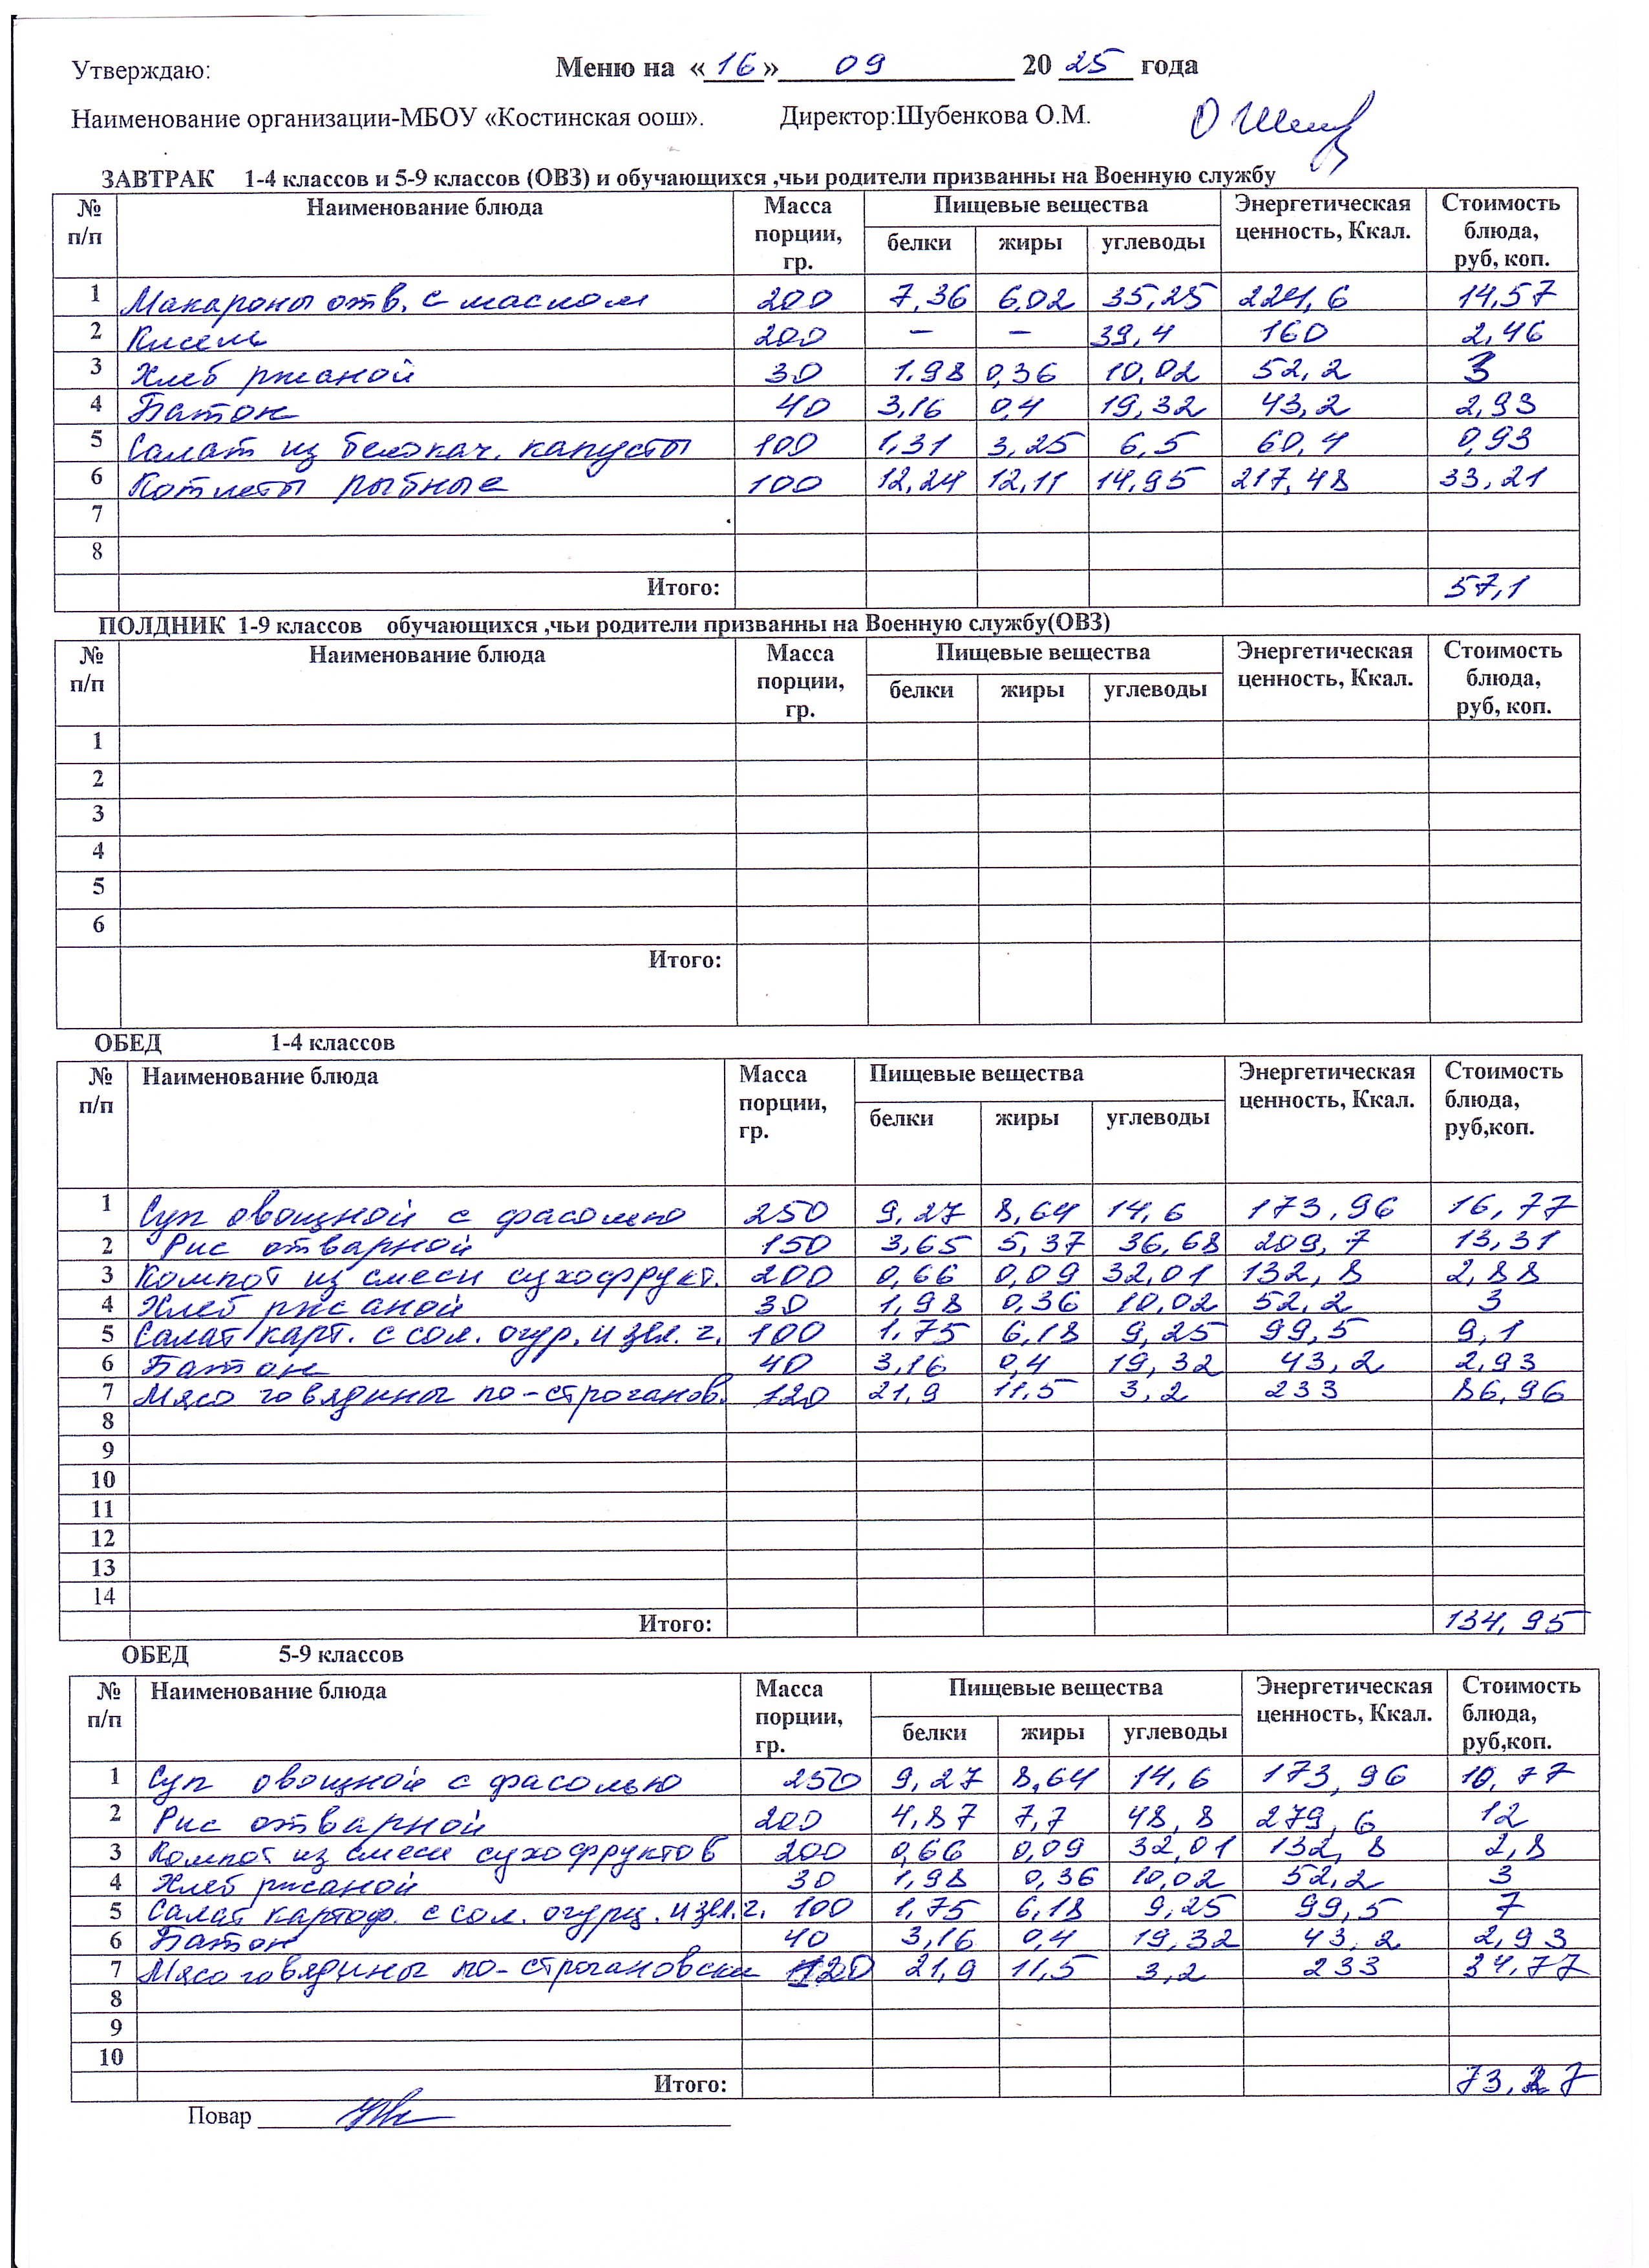 Утверждаю: Меню на «16» 09 20 25 года
Наименование организации-МБОУ «Костинская оош». Директор:Шубенкова О.М.
ЗАВТРАК 1-4 классов и 5-9 классов (ОВЗ) и обучающихся ,чьи родители призванны на Военную службу
№ п/п Наименование блюда Масса порции, гр. Пищевые вещества Энергетическая ценность, Ккал. Стоимость блюда, руб, коп.
белки жиры углеводы
1 Макароны отв. с маслом 200 7,36 6,02 35,25 224,6 14,57
2 Кисель 200 – – 39,4 160 2,46
3 Хлеб ржаной 30 1.98 0,36 10,02 52,2 3
4 Батон 40 3,16 0,4 19,32 43,2 2,93
5 Салат из белокач. капусты 100 1,31 3,25 6,5 60,4 0,93
6 Котлеты рыбные 100 12,24 12,11 14,95 217,48 33,21
7
8
Итого: 57,1
ПОЛДНИК 1-9 классов обучающихся ,чьи родители призванны на Военную службу(ОВЗ)
№ п/п Наименование блюда Масса порции, гр. Пищевые вещества Энергетическая ценность, Ккал. Стоимость блюда, руб, коп.
белки жиры углеводы
1
2
3
4
5
6
Итого:
ОБЕД 1-4 классов
№ п/п Наименование блюда Масса порции, гр. Пищевые вещества Энергетическая ценность, Ккал. Стоимость блюда, руб,коп.
белки жиры углеводы
1 Суп овощной с фасолью 250 9,27 8,64 14,6 173,96 16,77
2 Рис отварной 150 3,65 5,37 36,68 209,7 13,31
3 Компот из смеси сухофрукт. 200 0,66 0,09 32,01 132,8 2,88
4 Хлеб ржаной 30 1,98 0,36 10,02 52,2 3
5 Салат карт. с сол. огур. и зел. г. 100 1.75 6,18 9,25 99,5 9,1
6 Батон 40 3,16 0,4 19,32 43,2 2,93
7 Мясо говядины по-строганов. 120 21,9 11,5 3,2 233 86,96
8
9
10
11
12
13
14
Итого: 134,95
ОБЕД 5-9 классов
№ п/п Наименование блюда Масса порции, гр. Пищевые вещества Энергетическая ценность, Ккал. Стоимость блюда, руб,коп.
белки жиры углеводы
1 Суп овощной с фасолью 250 9,27 8,64 14,6 173,96 10,77
2 Рис отварной 200 4,87 7,7 48,8 279,6 12
3 Компот из смеси сухофруктов 200 0,66 0,09 32,01 132,8 2,8
4 Хлеб ржаной 30 1,98 0,36 10,02 52,2 3
5 Салат картоф. с сол. огурц. и зел. г. 100 1,75 6,18 9,25 99,5 7
6 Батон 40 3,16 0,4 19,32 43,2 2,93
7 Мясо говядины по-строгановски 120 21,9 11,5 3,2 233 34,77
8
9
10
Итого: 73,27
Повар